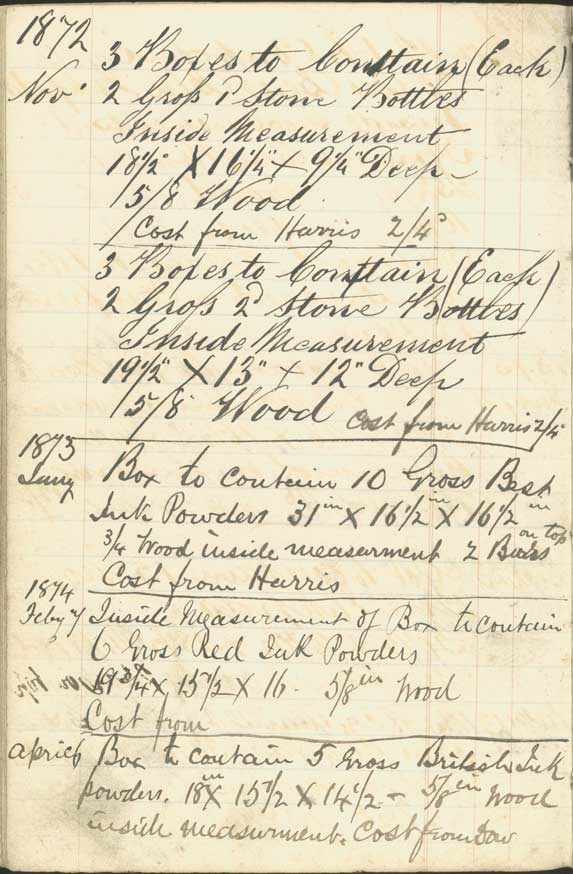 1872
3 Boxes to Contain (Each)
Nov.
2 Gross 1d Stone Bottles
Inside Measurement
18 1/2" X 16 1/4" X 9 1/4" Deep
5/8 Wood
Cost from Harris 2/4d
3 Boxes to Contain (Each)
2 Gross 2d Stone Bottles
Inside Measurement
19 1/2" X 13" X 12" Deep
5/8 Wood Cost from Harris 2/4
1873
Jany Box to contain 10 Gross Best
Ink Powders 31 in X 16 1/2 in X 16 1/2 in
on top
3/4 Wood inside measurment 2 Bars
Cost from Harris
1874
Feby 7 Inside Measurement of Box to contain
6 Gross Red Ink Powders
19 3/4 X 15 1/2 X 16 - 5/8 in Wood
Cost from
april 6 Box to contain 5 Gross British Ink
powders. 18 in X 15 1/2 X 14 1/2 - 5/8 in Wood
inside measurment. Cost from